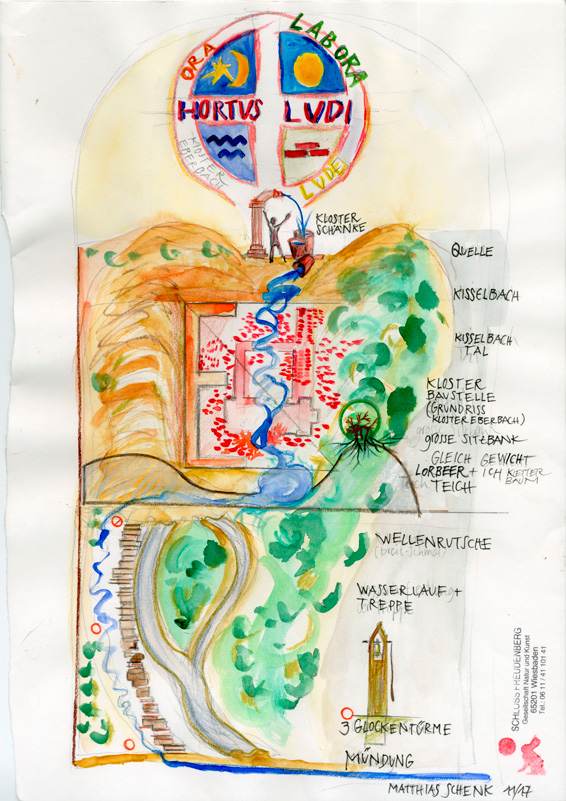 ORA
LABORA
HORTUS LUDI
KLOSTER
EBERBACH
LUDE
KLOSTER
SCHÄNKE
QUELLE
KISSELBACH
KISSELBACH
TAL
KLOSTER
BAUSTELLE
(GRUNDRISS
KLOSTER EBERBACH)
GROSSE SITZBANK
GLEICH GEWICHT
LORBEER + ICH KLETTER
TEICH BAUM
WELLENRUTSCHE
(breit-schmal)
WASSERLAUF +
TREPPE
3 GLOCKENTÜRME
MÜNDUNG
MATTHIAS SCHENK 11/17
SCHLOSS FREUDENBERG
Gesellschaft Natur und Kunst
65201 Wiesbaden
Tel.: 06 11 / 41 101 41